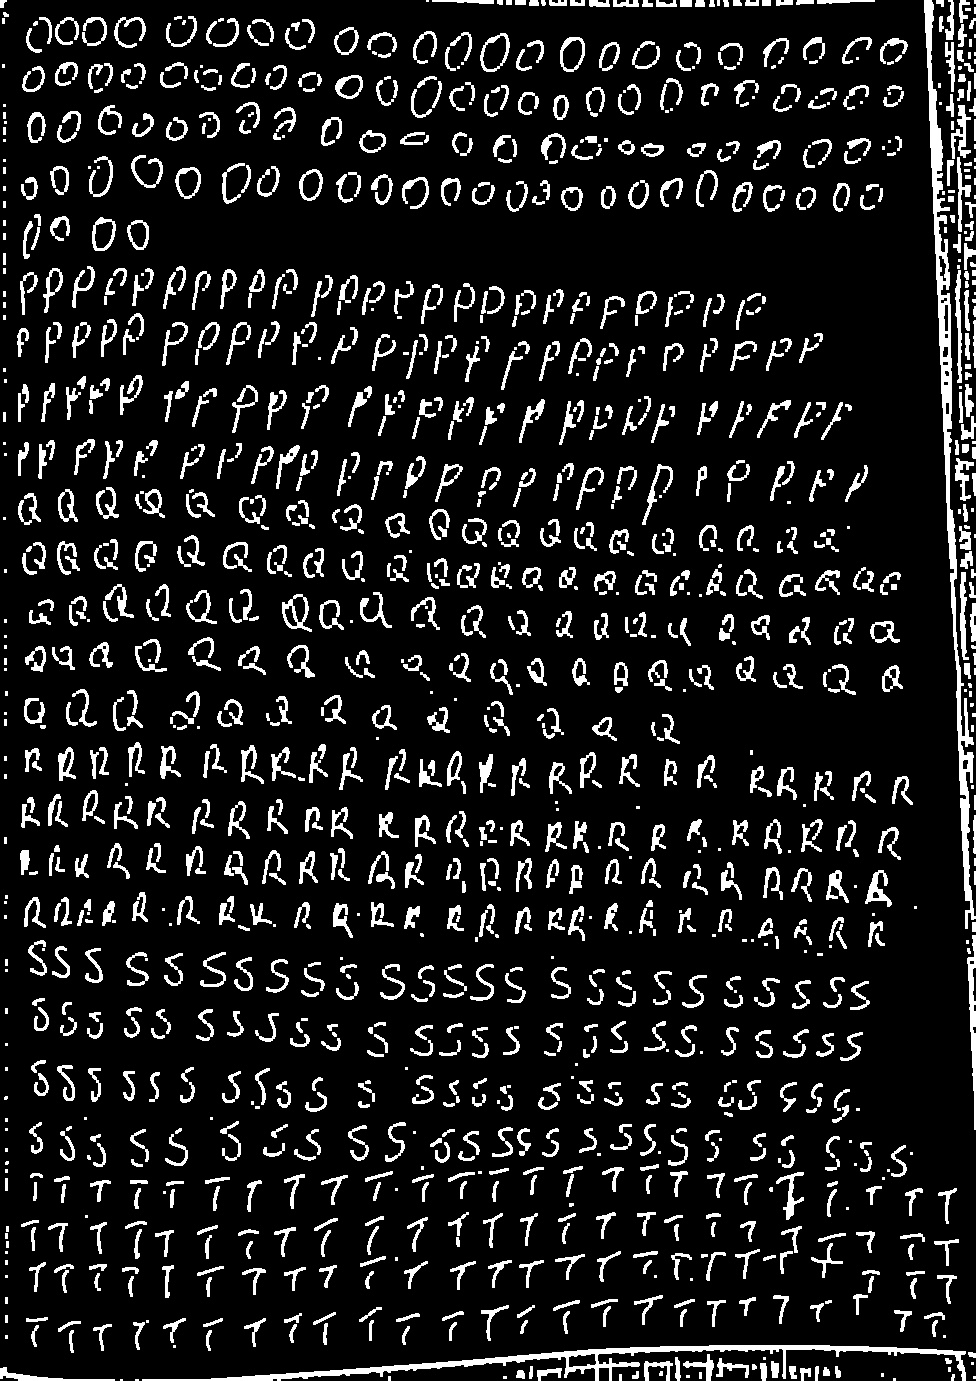 O O O O O O O O O O O O O O O O O O O O O O O
O O O O O O O O O O O O O O O O O O O O O O O O O
O O O O O O O O O O O O O O O O O O O O O O O
O O O O O O O O O O O O O O O O O O O O O O O O O
O O O O
P P P P P P P P P P P P P P P P P P P P P P P P P
P P P P P P P P P P P P P P P P P P P P P P P P P
P P P P P P P P P P P P P P P P P P P P P P P P P
P P P P P P P P P P P P P P P P P P P P P P P P P
Q Q Q Q Q Q Q Q Q Q Q Q Q Q Q Q Q Q Q Q
Q Q Q Q Q Q Q Q Q Q Q Q Q Q Q Q Q Q Q Q Q Q Q Q
Q Q Q Q Q Q Q Q Q Q Q Q Q Q Q Q Q Q Q Q Q
Q Q Q Q Q Q Q Q Q Q Q Q Q Q Q Q Q Q Q Q
Q Q Q Q Q Q Q Q Q Q Q Q Q
R R R R R R R R R R R R R R R R R R R R R R R R R
R R R R R R R R R R R R R R R R R R R R R R R R R
R R R R R R R R R R R R R R R R R R R R R R R R R
R R R R R R R R R R R R R R R R R R R R R R R R R
S S S S S S S S S S S S S S S S S S S S S S S S S
S S S S S S S S S S S S S S S S S S S S S S S S S
S S S S S S S S S S S S S S S S S S S S S S S S S
S S S S S S S S S S S S S S S S S S S S S S S S S
T T T T T T T T T T T T T T T T T T T T T T T T T
T T T T T T T T T T T T T T T T T T T T T T T T T
T T T T T T T T T T T T T T T T T T T T T T T T T
T T T T T T T T T T T T T T T T T T T T T T T T T